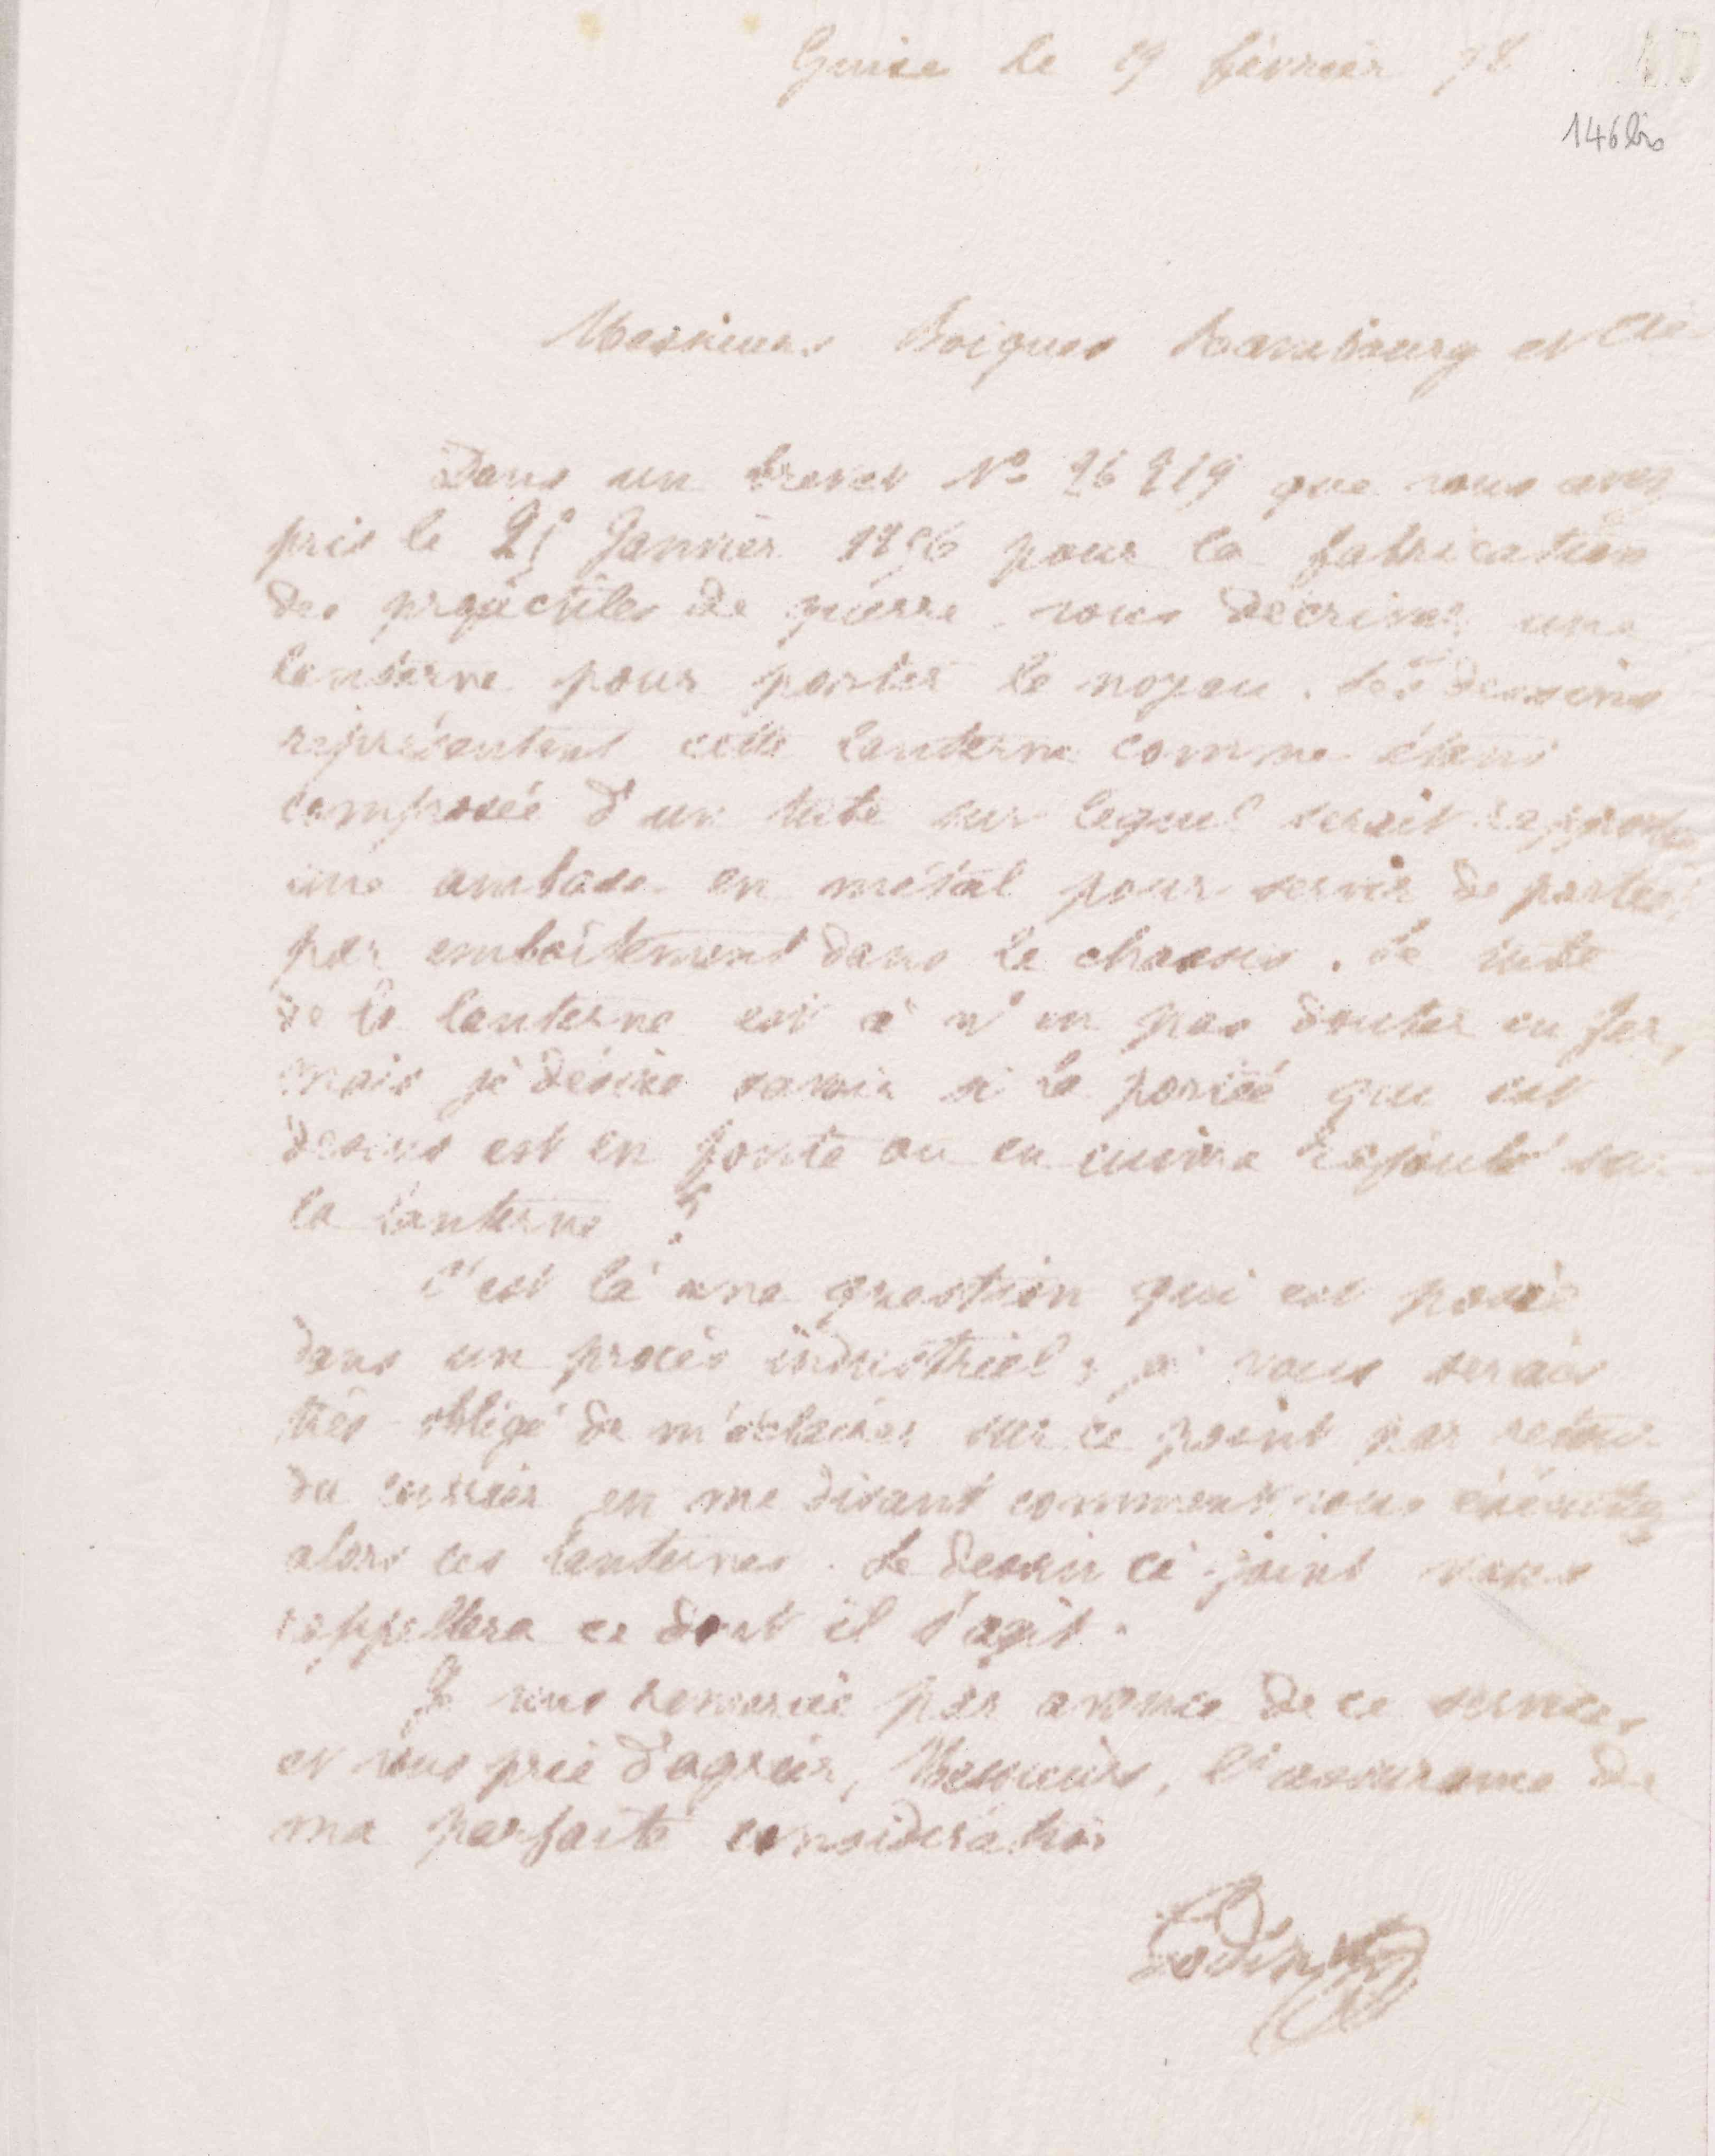 Guise le 19 février 78
146 bis
Messieurs Boigues Rambourg et Cie
Dans un brevet No 26219 que vous avez
pris le 25 Janvier 1856 pour la fabrication
des projectiles de guerre, vous décrivez une
lanterne pour porter le noyau. Les dessins
représentent cette lanterne comme étant
composée d'un tube sur lequel serait rapportée
une embase en métal pour servir de portée
par emboîtement dans le chassis. Le tube
de la lanterne est à n'en pas douter en fer,
mais je désire savoir si la portée qui est
dessus est en fonte ou en cuivre rajouté sur
la lanterne ?
C'est là une question qui est posée
dans un procès industriel ; je vous serais
très obligé de m'éclairer sur ce point par retour
du courrier en me disant comment vous exécutiez
alors ces lanternes. Le dessin ci-joint vous
rappellera ce dont il s'agit.
Je vous remercie par avance de ce service,
et vous prie d'agréer, Messieurs, l'assurance de
ma parfaite considération
Godin